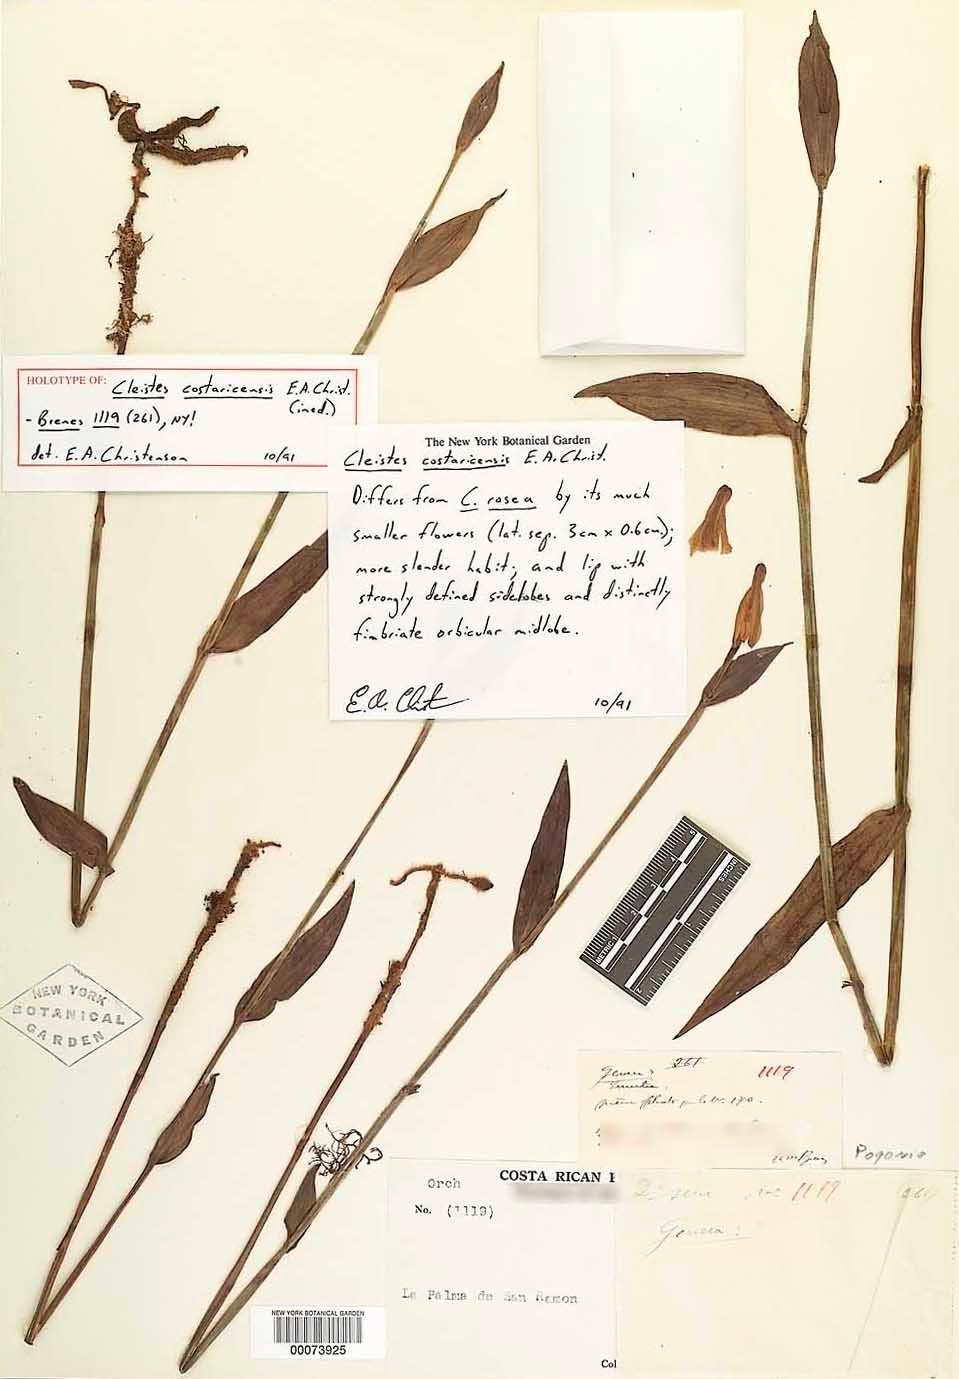 HOLOTYPE OF: Cleistes costaricensis E.A.Christ.
(ined.)
- Brenes 1119 (261), NY!
det. E.A. Christenson 10/91
The New York Botanical Garden
Cleistes costaricensis E.A.Christ.
Differs from C. rosea by its much
smaller flowers (lat. sep. 3cm x 0.6cm.);
more slender habit; and lip with
strongly defined sidelobes and distinctly
fimbriate orbicular midlobe.
10/91
INCHES
METRIC
NEW YORK
BOTANICAL
GARDEN
261
1119
Pogonia
COSTA RICAN
Orch
No. (1119)
La Palma de San Ramon
Col
1119
261
Genera:
NEW YORK BOTANICAL GARDEN
00073925